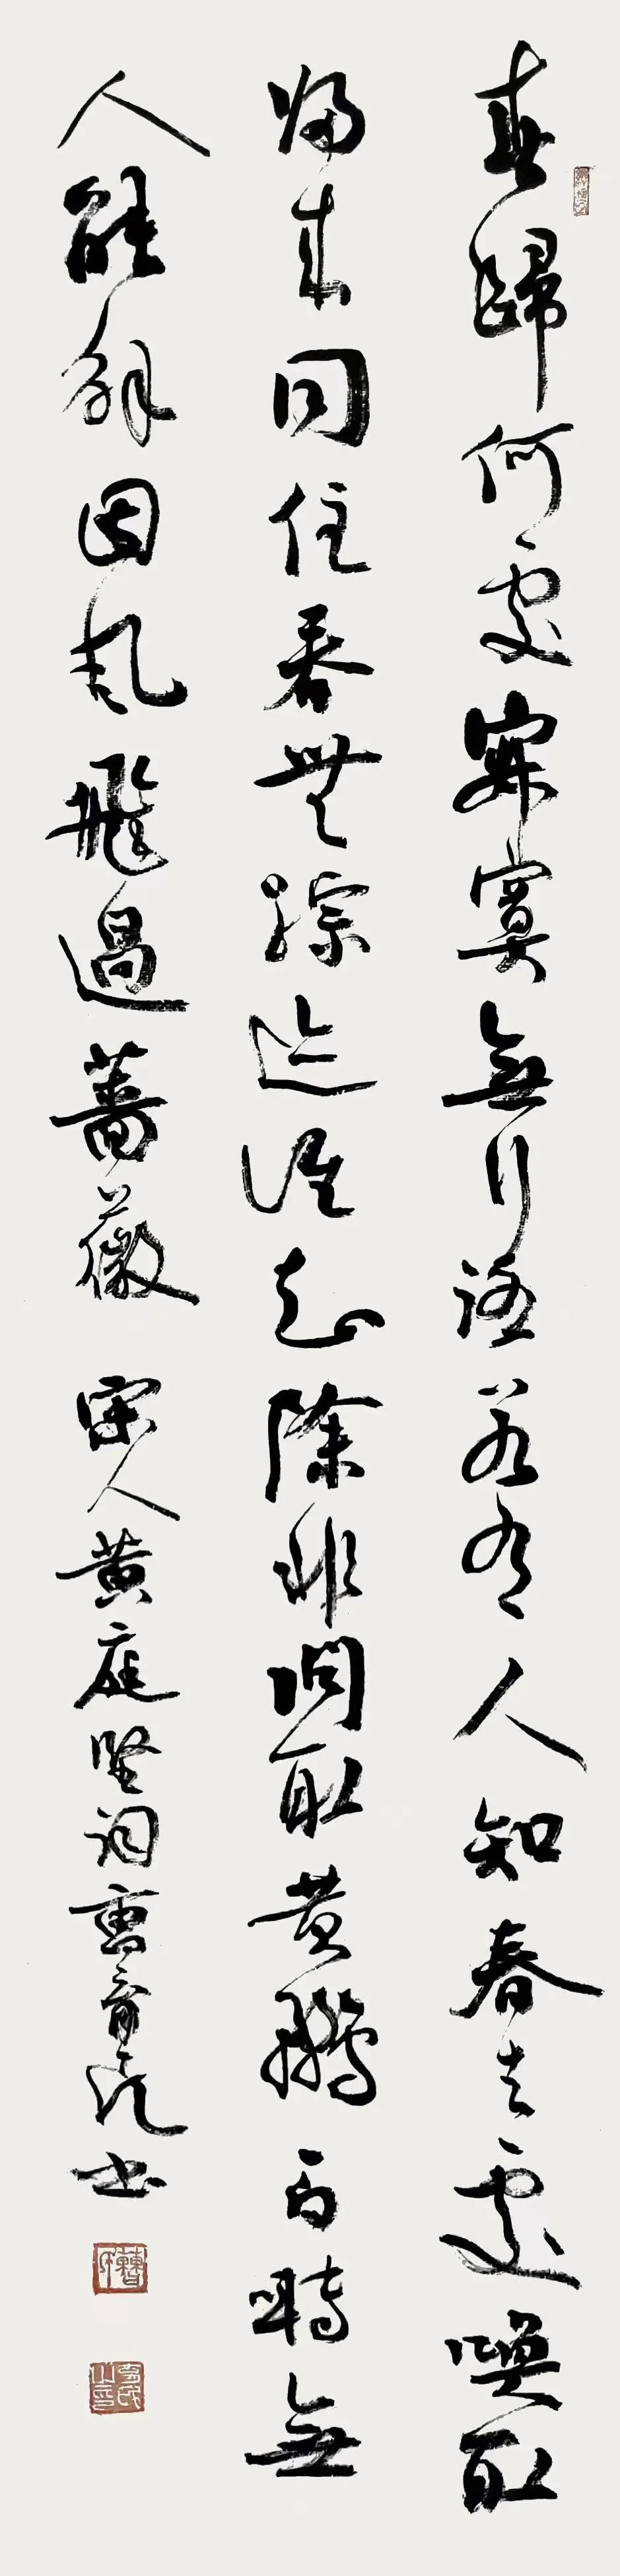 春歸何處寂寞無行路若有人知春去處喚取
歸来同住春無踪迹誰知除非問取黄鸝百囀無
人能解因風飛過薔薇 宋人黄庭堅詞曹育民书